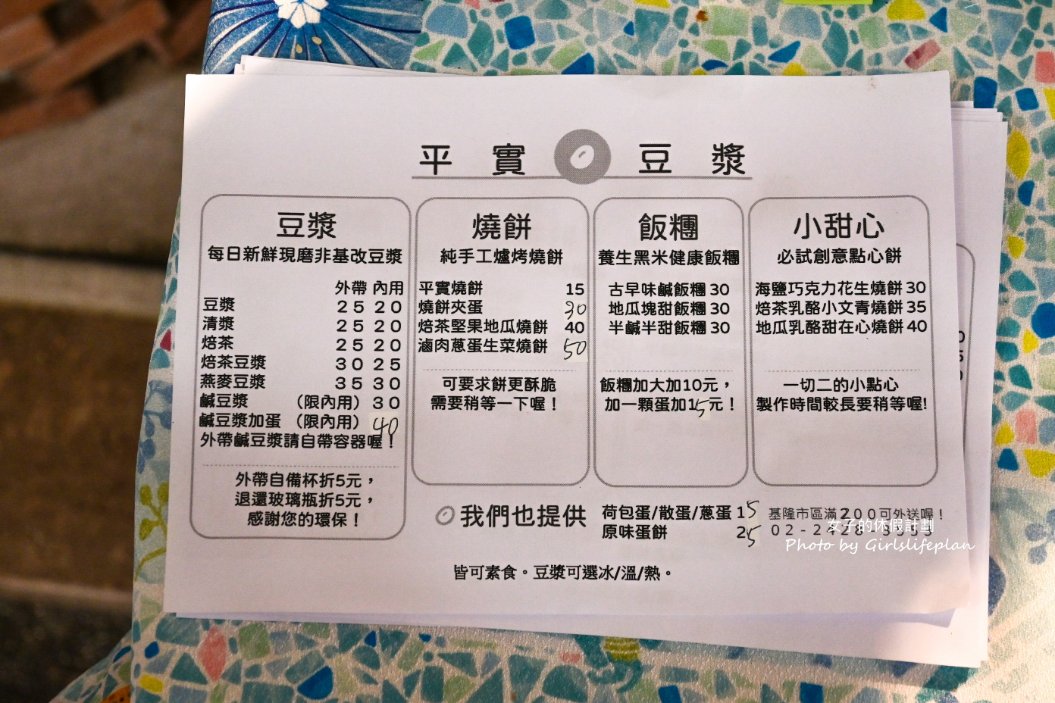 平實豆漿
豆漿
每日新鮮現磨非基改豆漿
外帶 內用
豆漿 25 20
清漿 25 20
焙茶 25 20
焙茶豆漿 30 25
燕麥豆漿 35 30
鹹豆漿 (限內用) 30
鹹豆漿加蛋 (限內用) 40
外帶鹹豆漿請自帶容器喔！
外帶自備杯折5元，
退還玻璃瓶折5元，
感謝您的環保！
燒餅
純手工爐烤燒餅
平實燒餅 15
燒餅夾蛋 30
焙茶堅果地瓜燒餅 40
滷肉蔥蛋生菜燒餅 50
可要求餅更酥脆
需要稍等一下喔！
飯糰
養生黑米健康飯糰
古早味鹹飯糰 30
地瓜塊甜飯糰 30
半鹹半甜飯糰 30
飯糰加大加10元，
加一顆蛋加15元！
小甜心
必試創意點心餅
海鹽巧克力花生燒餅 30
焙茶乳酪小文青燒餅 35
地瓜乳酪甜在心燒餅 40
一切二的小點心
製作時間較長要稍等喔!
我們也提供
荷包蛋/散蛋/蔥蛋 15
原味蛋餅 25
基隆市區滿200可外送喔！
02-2428-
女子的休假計劃
Photo by Girlslifeplan
皆可素食。豆漿可選冰/溫/熱。